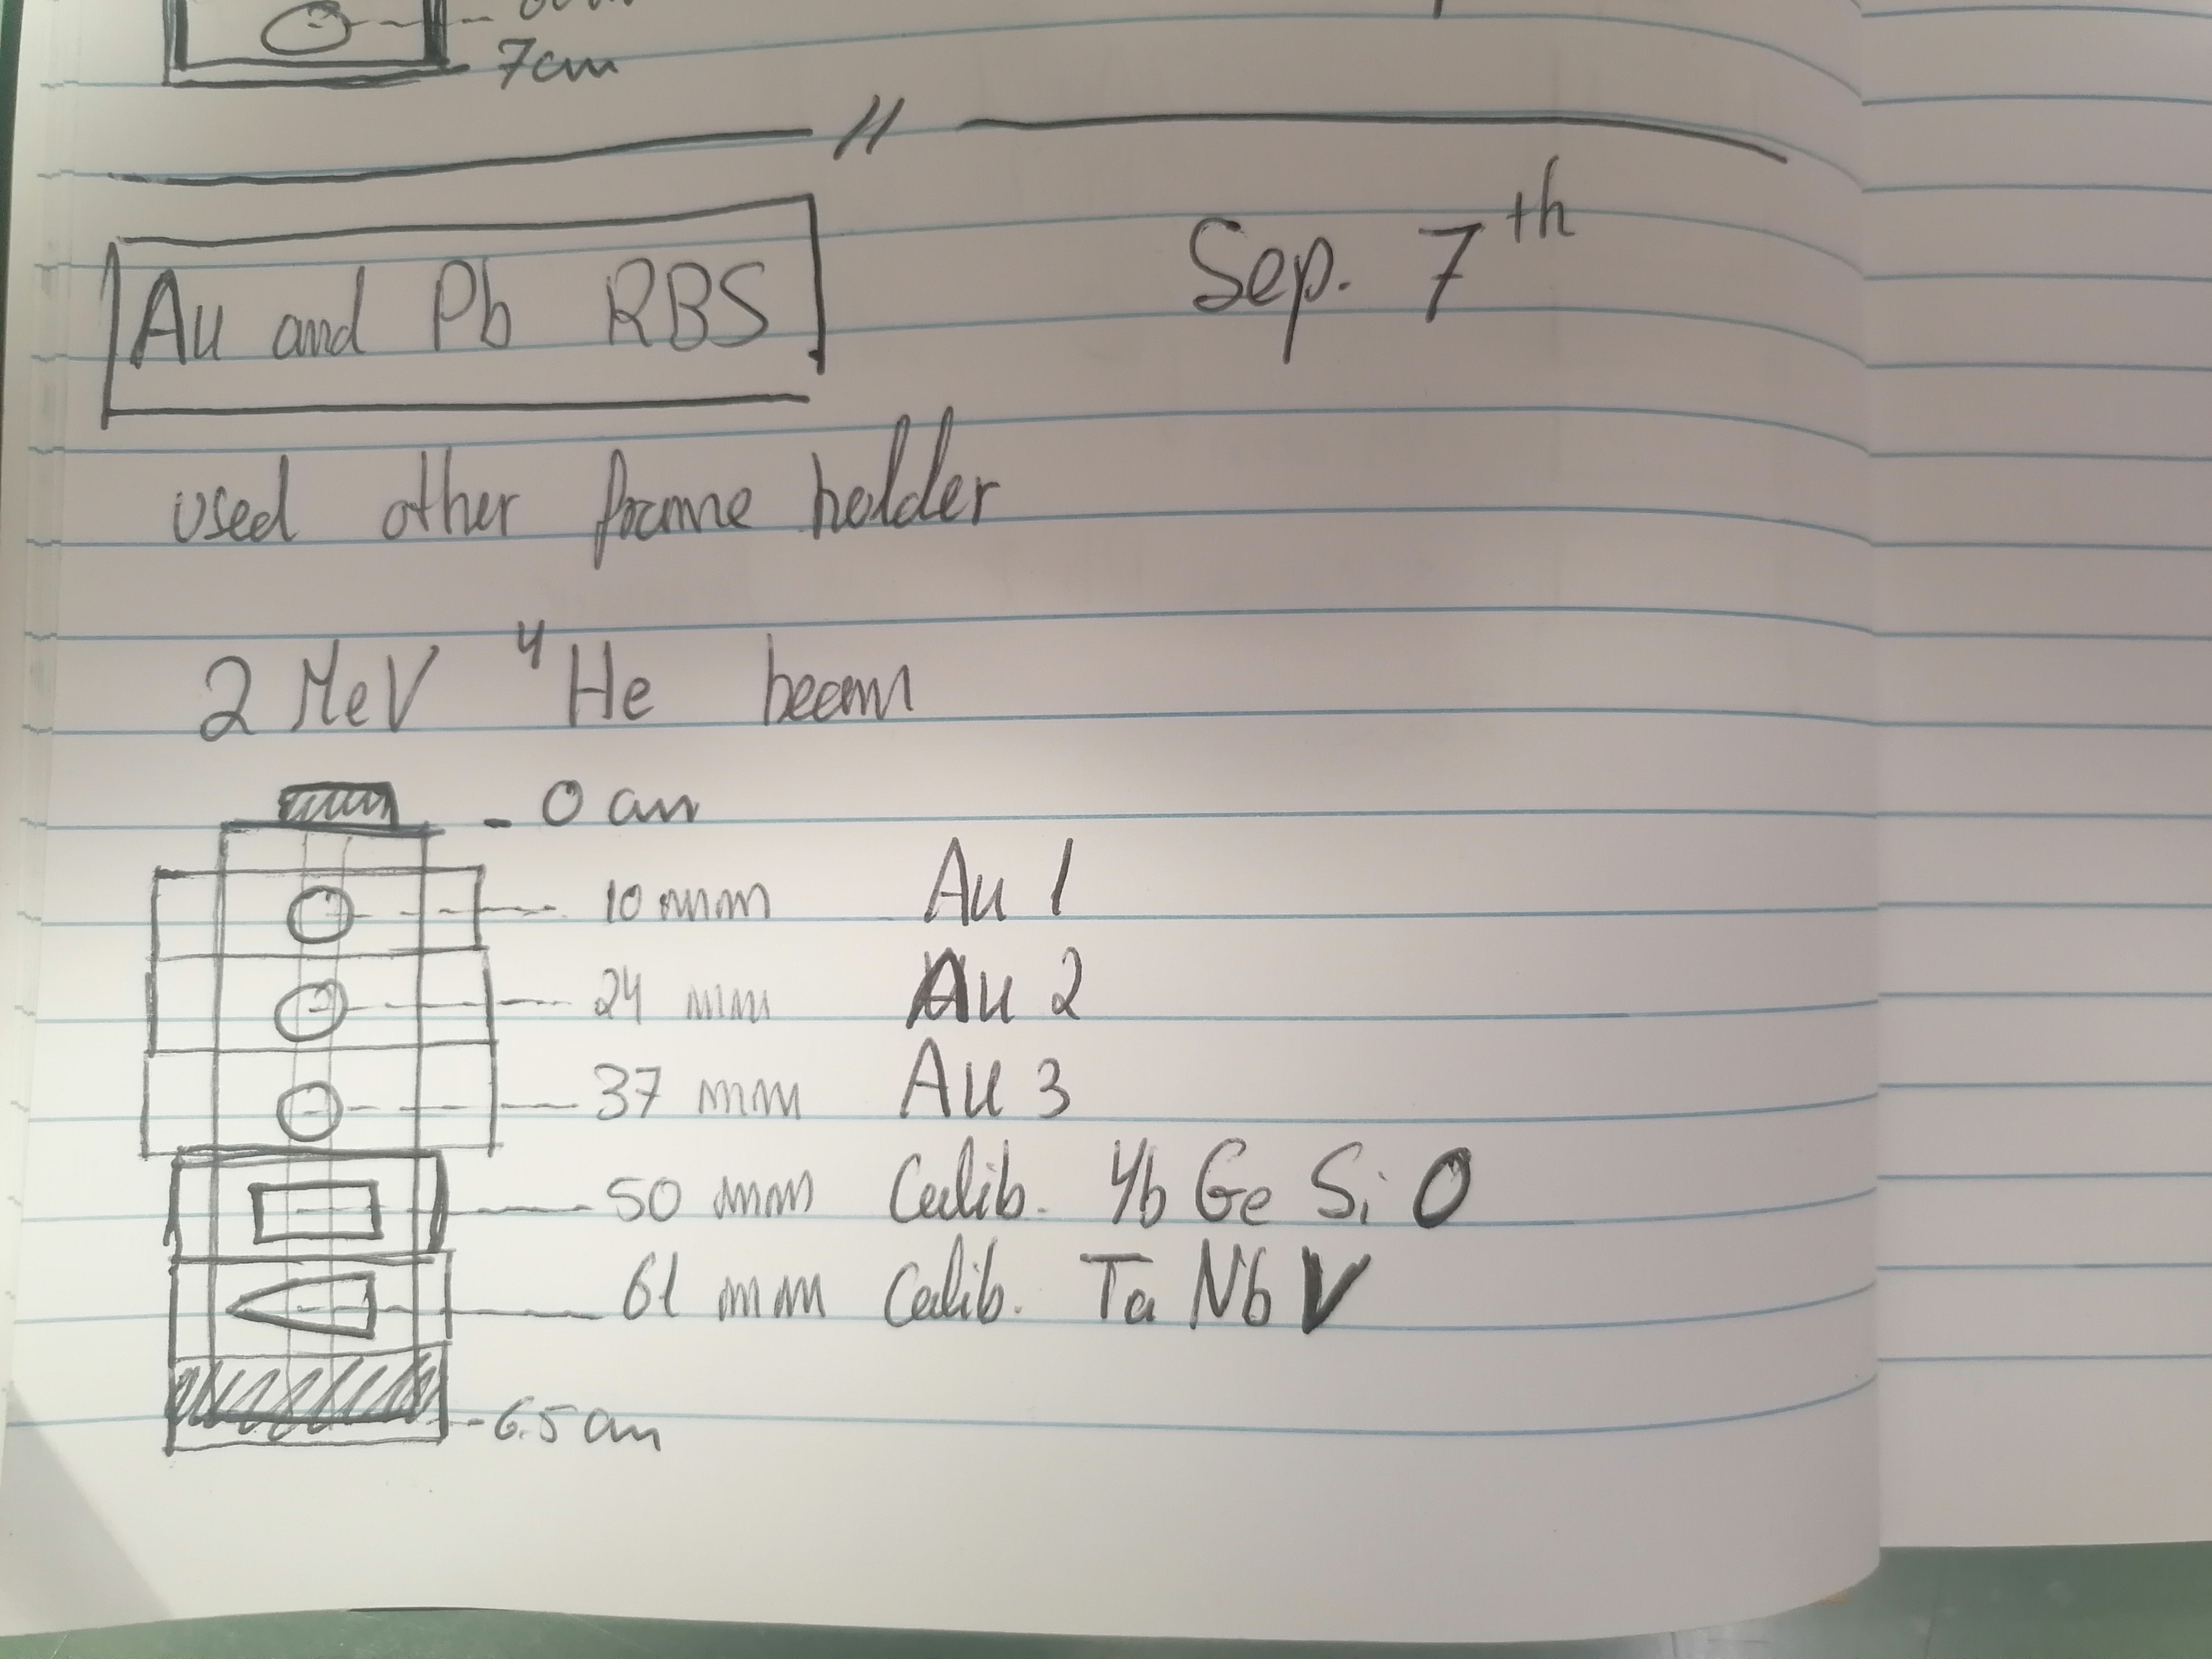 7cm
//
Au and Pb RBS
Sep. 7th
used other frame holder
2 MeV 4He beam
- 0 cm
10 mm Au 1
24 mm Au 2
37 mm Au 3
50 mm Calib. Yb Ge Si O
61 mm Calib. Ta Nb V
- 6.5 cm